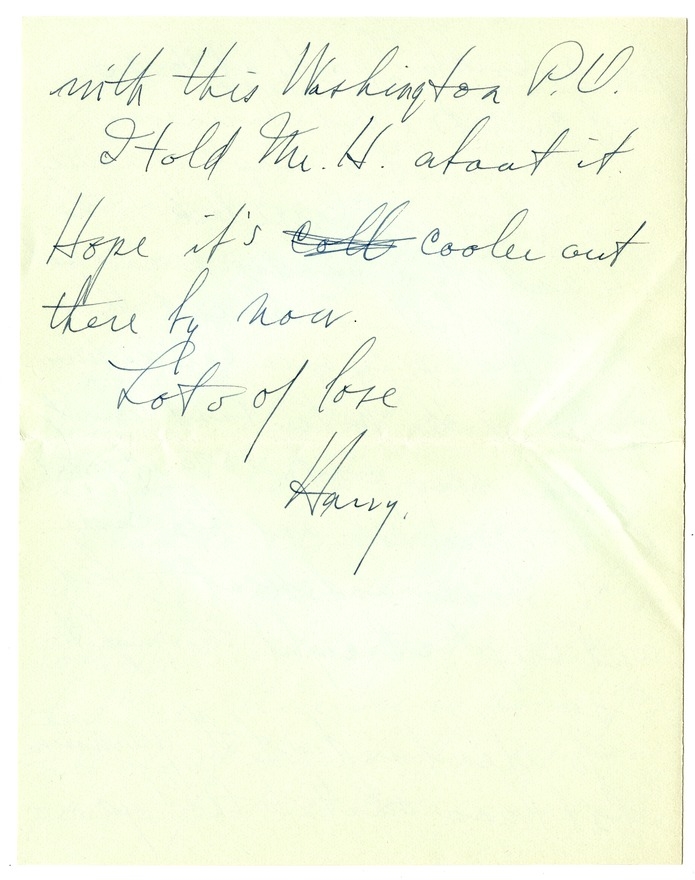 with this Washington P.O.
I told Mr. H. about it.
Hope it's coll cooler out
there by now.
Lots of love
Harry.